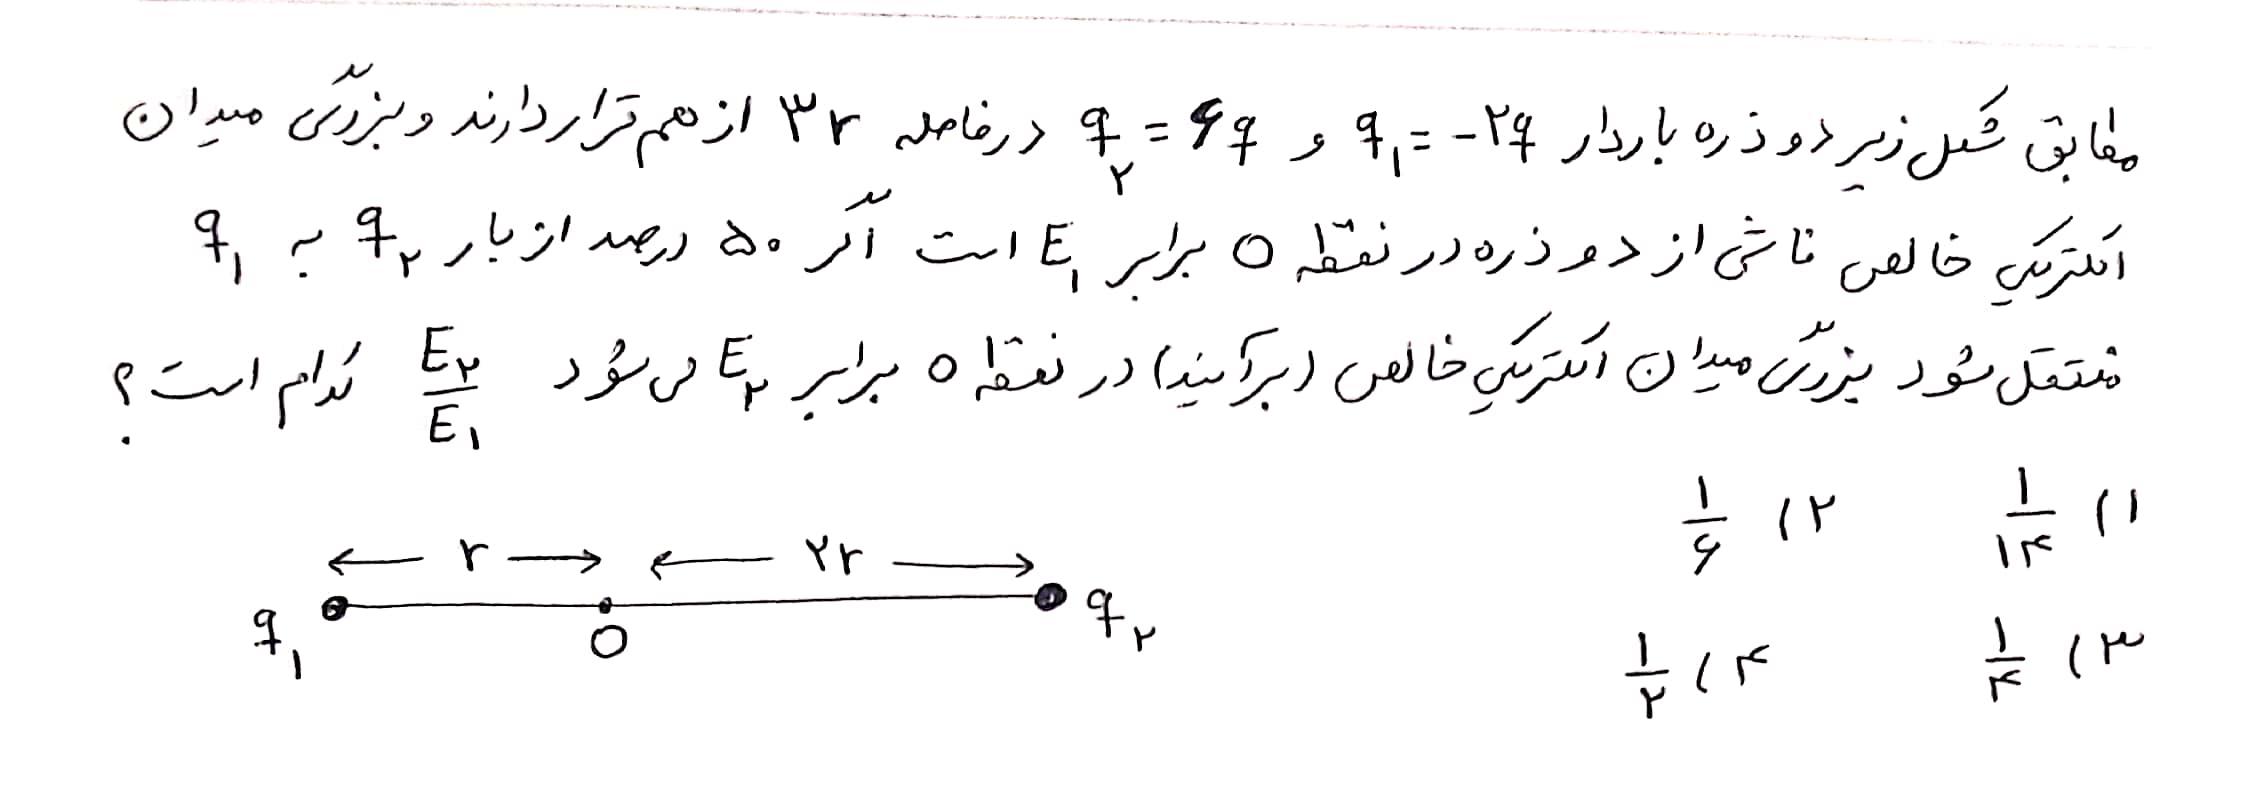 مطابق شکل زیر دو ذره باردار q₁ = -۲q و q₂ = ۶q در فاصله ۳r از هم قرار دارند و بزرگی میدان
الکتریکی خالص ناشی از دو ذره در نقطه O برابر E₁ است اگر ۵۰ درصد از بار q₂ به q₁
منتقل شود بزرگی میدان الکتریکی خالص (برآیند) در نقطه O برابر E₂ می‌شود E₂/E₁ کدام است؟
۱) ۱/۱۴ ۲) ۱/۶
۳) ۱/۴ ۴) ۱/۲
r ۲r
q₁ O q₂